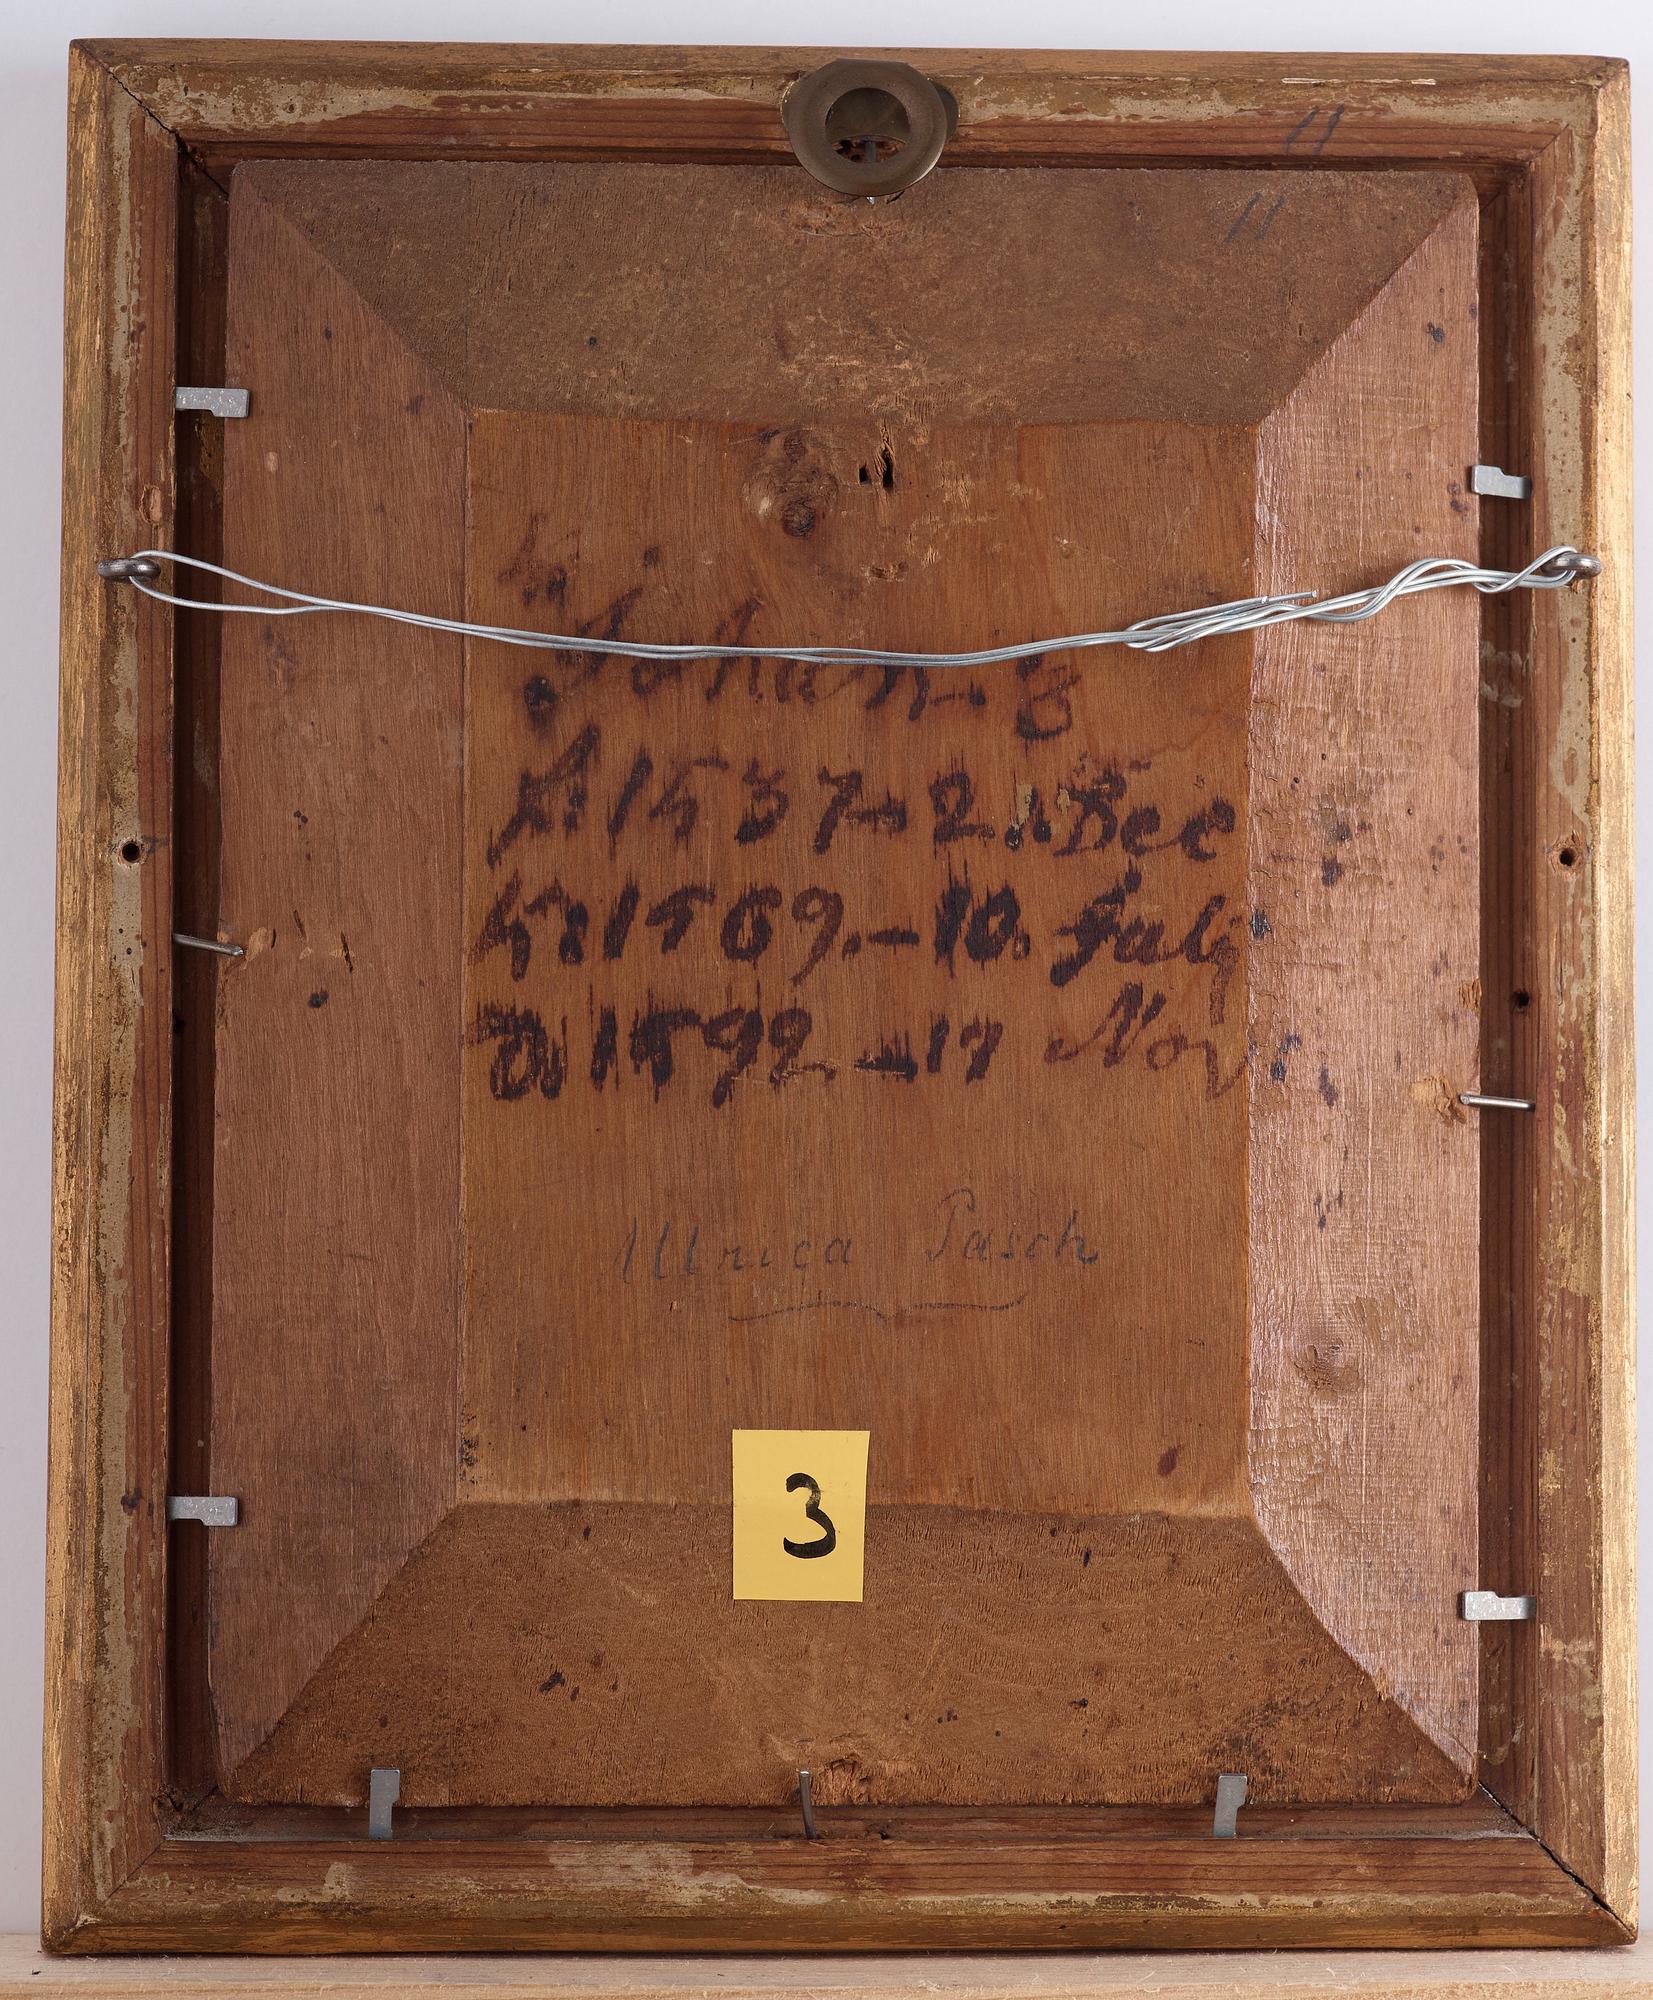 11
11
Johan. 3
A: 1537. 2. Dec
Kr: 1569. - 10. July
D: 1592 - 17 Nov:
Ulrica Pasch
3